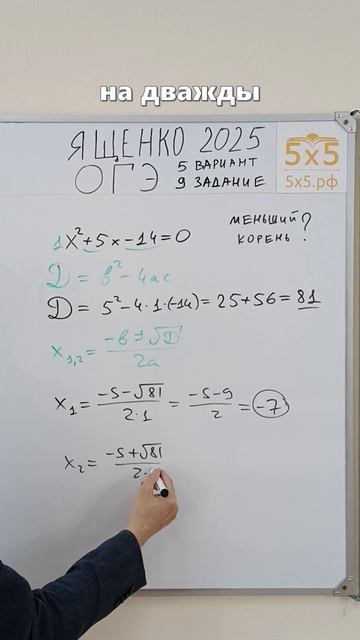 на дважды
ЯЩЕНКО 2025
ОГЭ
5 ВАРИАНТ
9 ЗАДАНИЕ
5x5
5x5.рф
1x²+5x-14=0
МЕНЬШИЙ
КОРЕНЬ?
D = b²-4ac
D = 5²-4·1·(-14)= 25+56=81
x₁,₂= (-b±√D)/2a
x₁= (-5-√81)/(2·1) = (-5-9)/2 = -7
x₂= (-5+√81)/2·